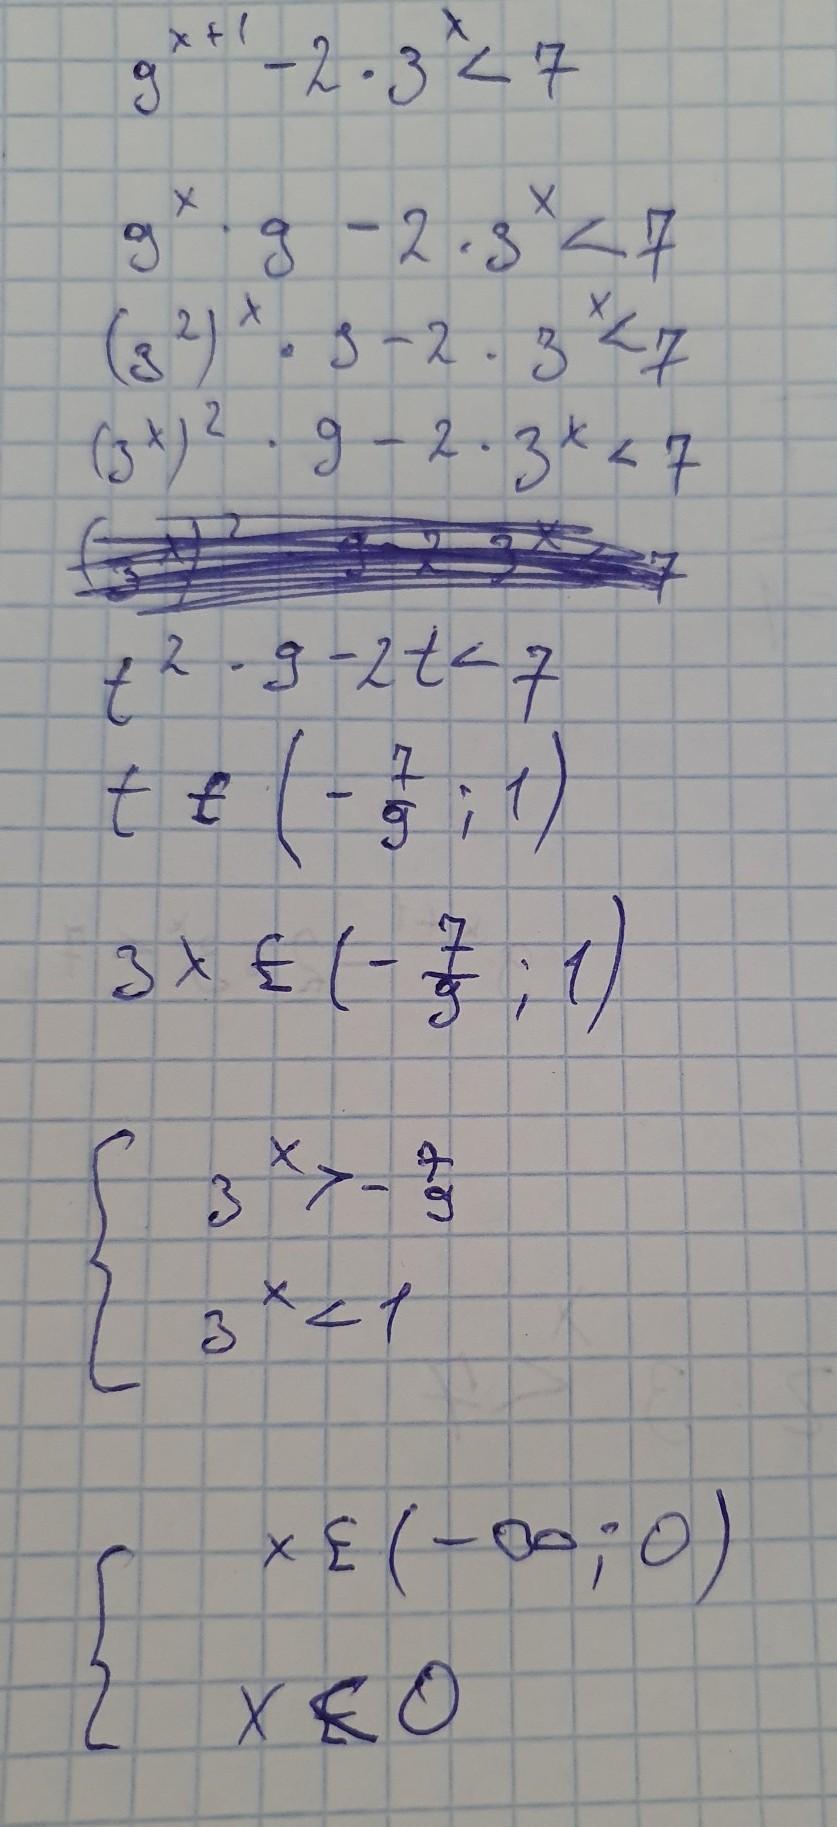 9^{x+1} - 2 · 3^x < 7
9^x · 9 - 2 · 3^x < 7
(3^2)^x · 9 - 2 · 3^x < 7
(3^x)^2 · 9 - 2 · 3^x < 7
t^2 · 9 - 2t < 7
t ∈ (-7/9 ; 1)
3^x ∈ (-7/9 ; 1)
{ 3^x > -7/9
3^x < 1
{ x ∈ (-∞ ; 0)
x < 0